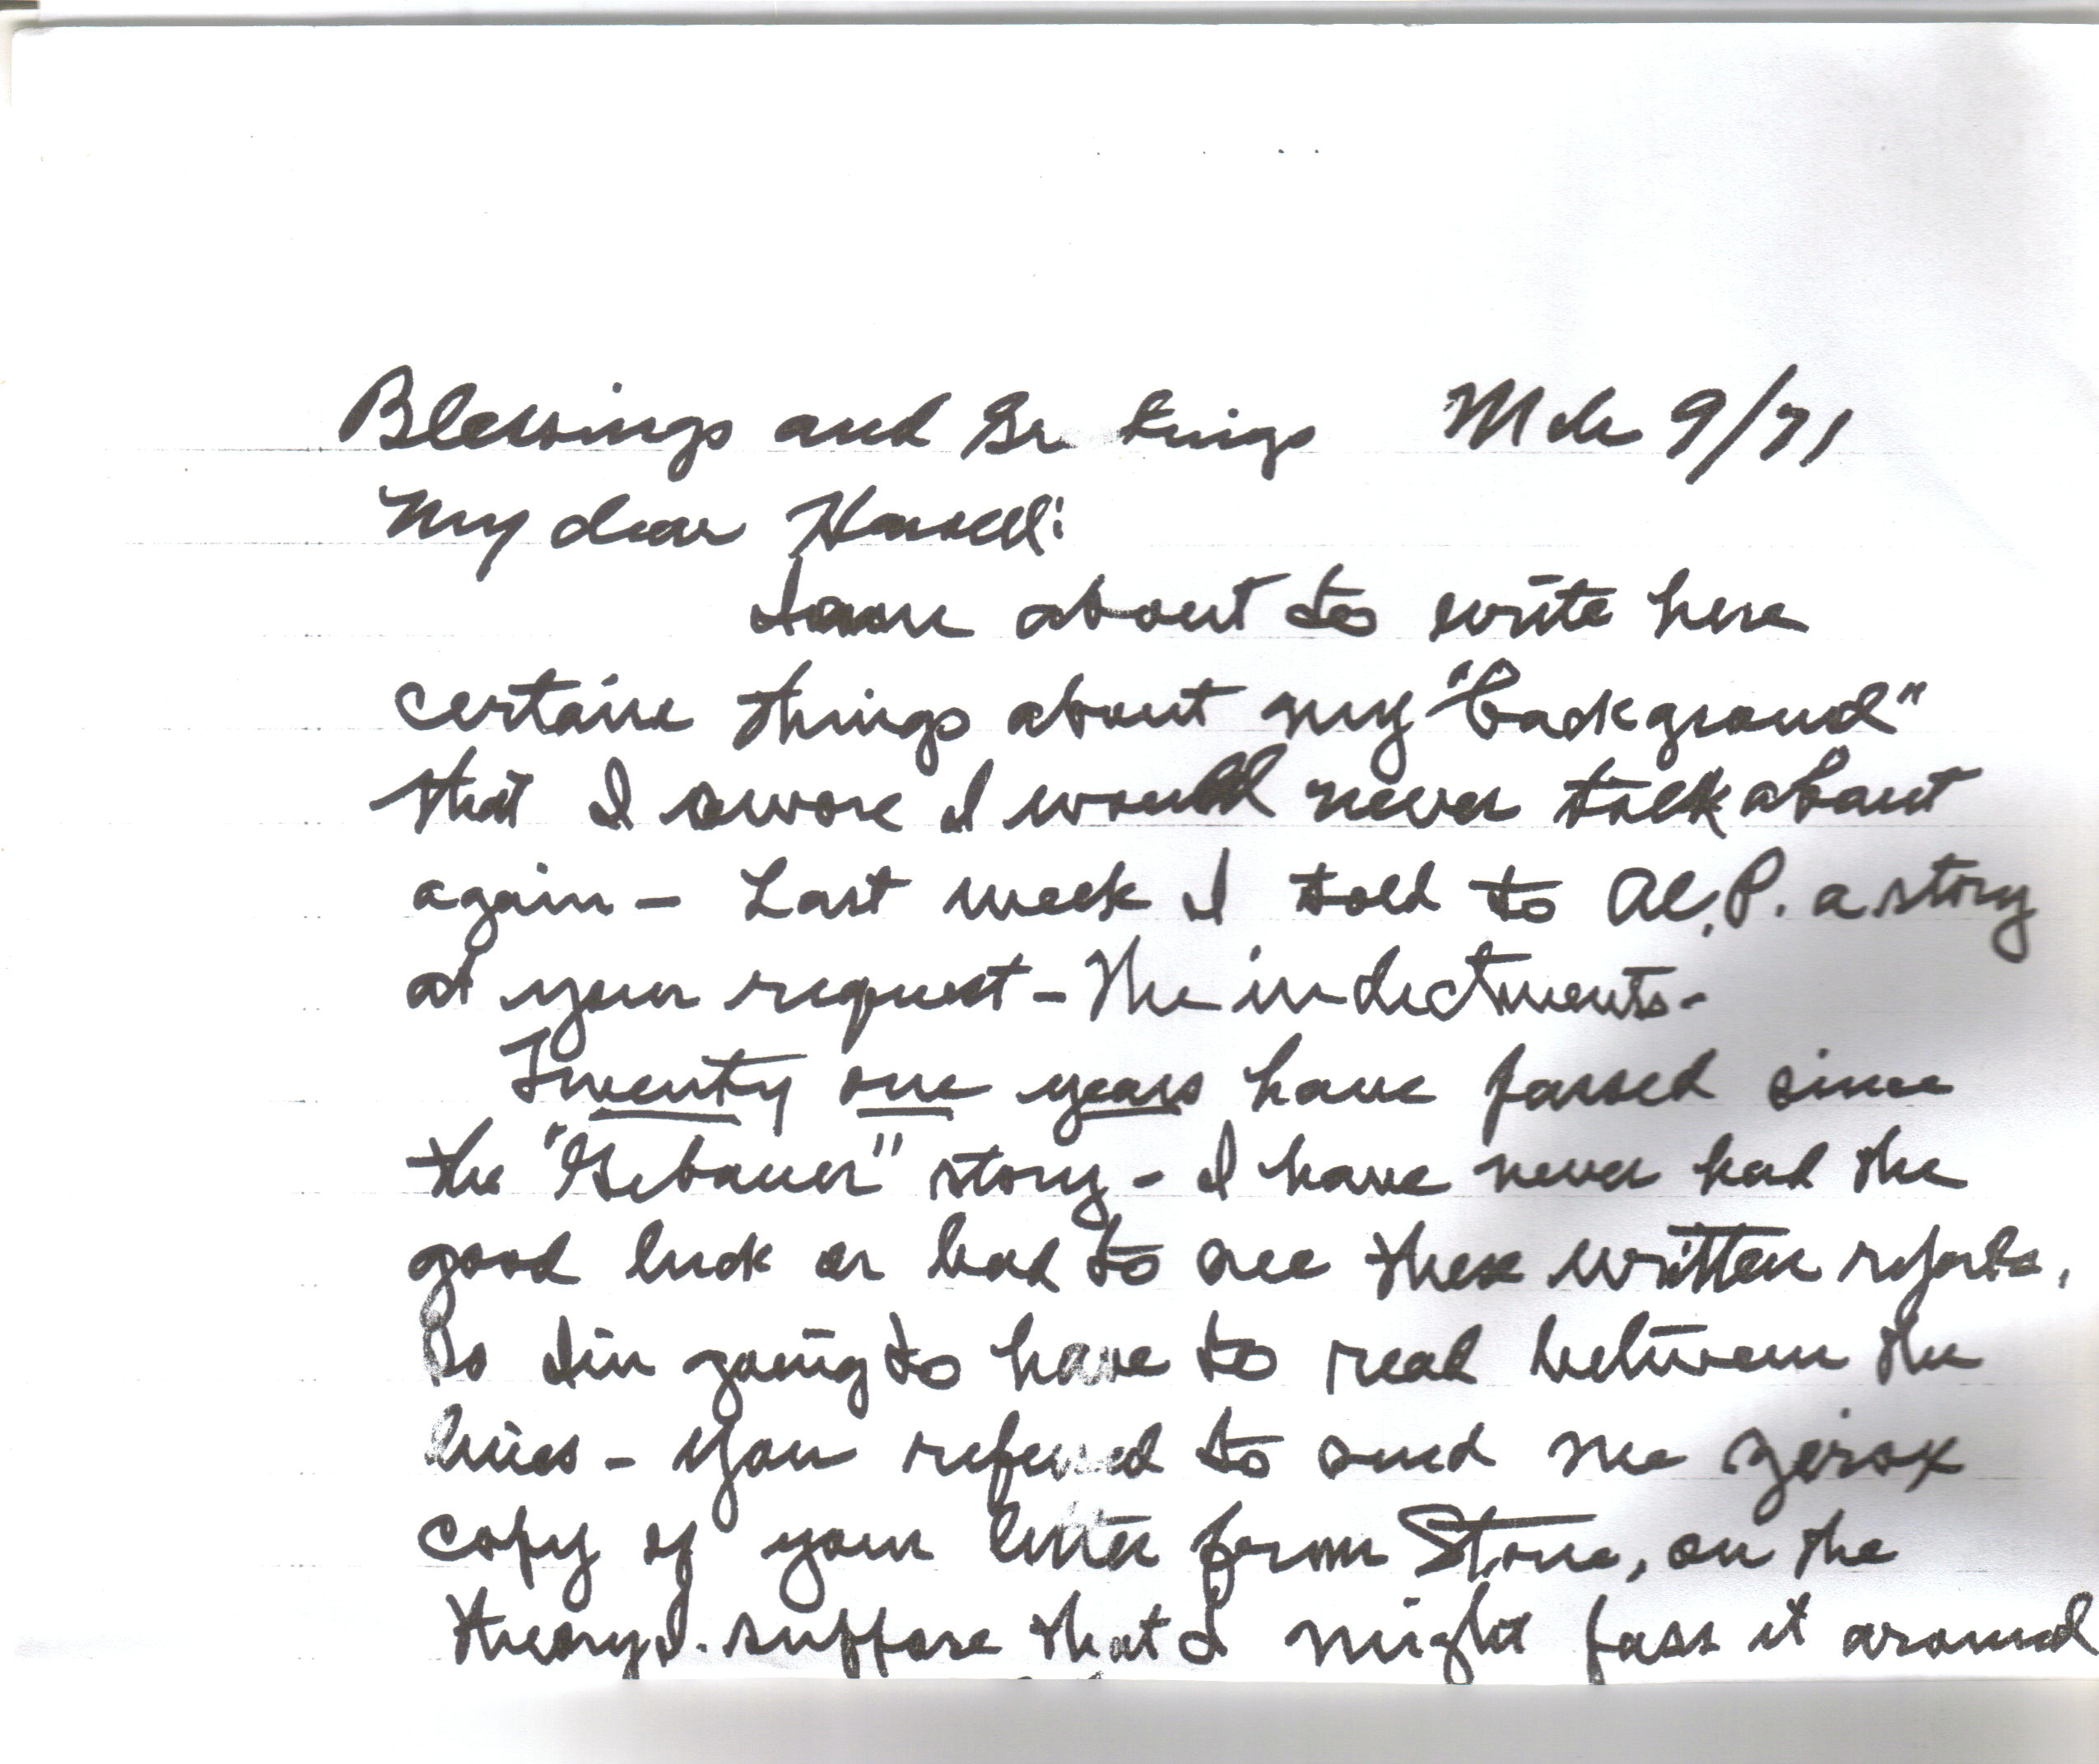 Blessings and Gr tings Mch 9/71
My dear
I am about to write here
certain things about my "background"
that I swore I would never talk about
again - Last week I told to Al. P. a story
at your request - The indictments -
Twenty one years have passed since
the "Gebauer" story - I have never had the
good luck or bad to see these written reports,
So I'm going to have to read between the
lines - You refused to send me zerox
copy of your letter from Stone, on the
theory I suppose that I might pass it around